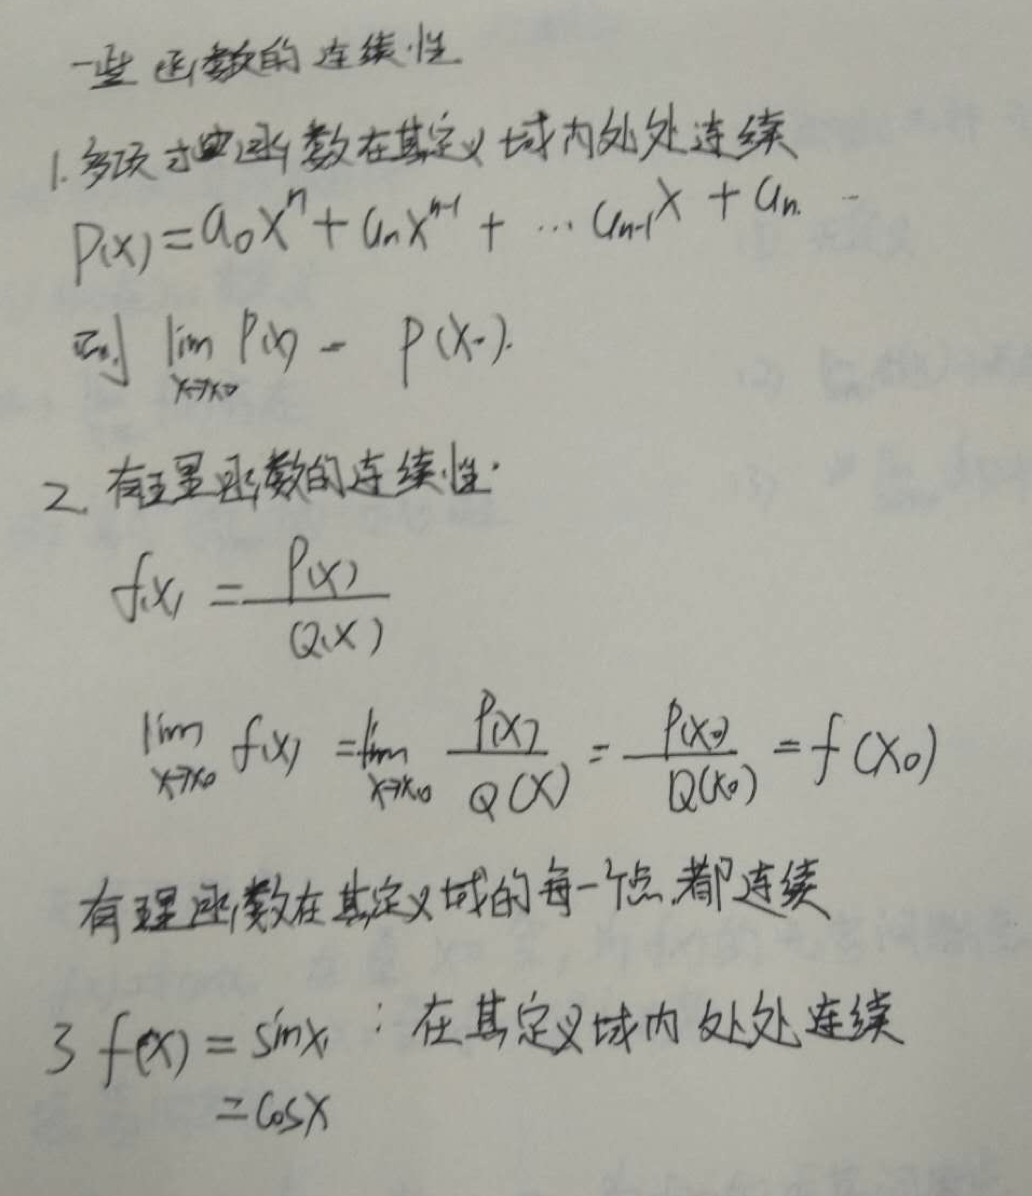 一些函数的连续性
1. 多项式函数在其定义域内处处连续
P(x) = a₀xⁿ + aₙxⁿ⁻¹ + … aₙ₋₁x + aₙ.
则 lim P(x) = P(x₀).
x→x₀
2. 有理函数的连续性.
f(x) = P(x) / Q(x)
lim f(x) = lim P(x) / Q(x) = P(x₀) / Q(x₀) = f(x₀)
x→x₀ x→x₀
有理函数在其定义域的每一个点都连续
3 f(x) = sinx, : 在其定义域内处处连续
= cosx